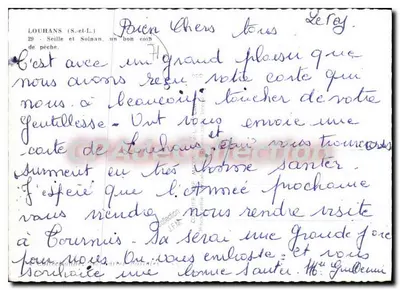 LOUHANS (S.-et-L.)
29 - Seille et Solnan, un bon coin
de pêche.
Bien Chers tous
C'est avec un grand plaisir que
nous avons reçu votre carte que
nous a beaucoup toucher de votre
gentillesse - Ont vous envoie une
carte de Louhans et que vous trouverons
surment en très bonne santer.
J'espere que l'Année prochaine
vous viendrez nous rendre visite
à Tournus - Sa serai une grande joie
pour nous On vous embrasse - et vous
souhaite une bonne santer Mme